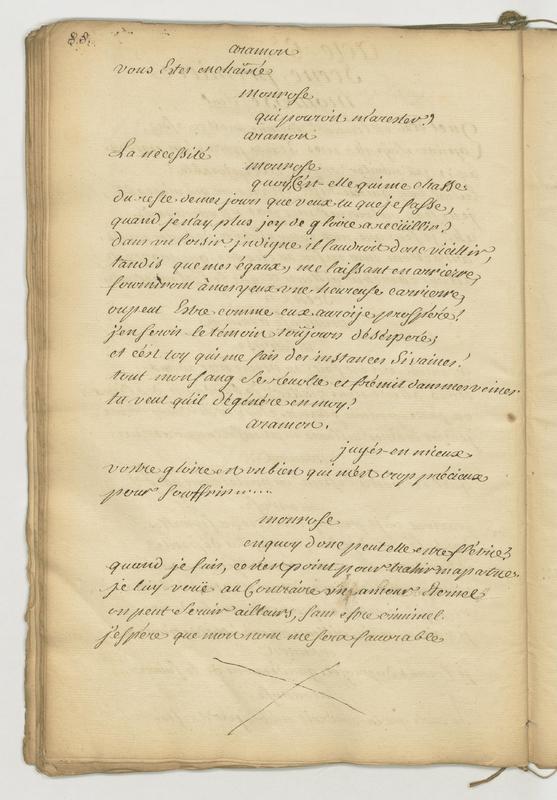 88.
aramon
vous Estes enchaîné
monrose
qui pouroit m'arester?
aramon
La nécéssité
monrose
quoy! C'est elle qui me chasse
du reste de mes jours que veux tu que je fasse,
quand je n'ay plus joy de gloire a recüillir?
dans un loisir indigne il faudroit donc vieillir,
tandis que mes égaux, me laissant en arriere,
fourniront à mes yeux une heureuse carriere,
ou peut Estre comme eux aurois je prospéré!
j'en serois le témoin toujours désespéré;
et c'est toy qui me fais des instances si vaines!
tout mon sang se révolte et frémit dans mes veines
tu veut qu'il dégénére en moy?
aramon.
jugés-en mieux
vostre gloire est un bien qui m'est trop précieux
pour souffrir......
monrose
en quoy donc peut elle estre flétrie?
quand je fuis, ce n'est point pour trahir ma patrie.
je luy voüe au Contraire un amour éternel
on peut servir ailleurs, sans estre criminel.
j'espére que mon nom me sera favorable